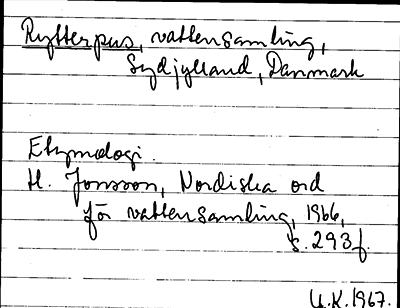 Rytterpus, vattensamling,
Sydjylland, Danmark
Etymologi.
H. Jonsson, Nordiska ord
för vattensamling, 1966,
s. 293f.
U.K. 1967.